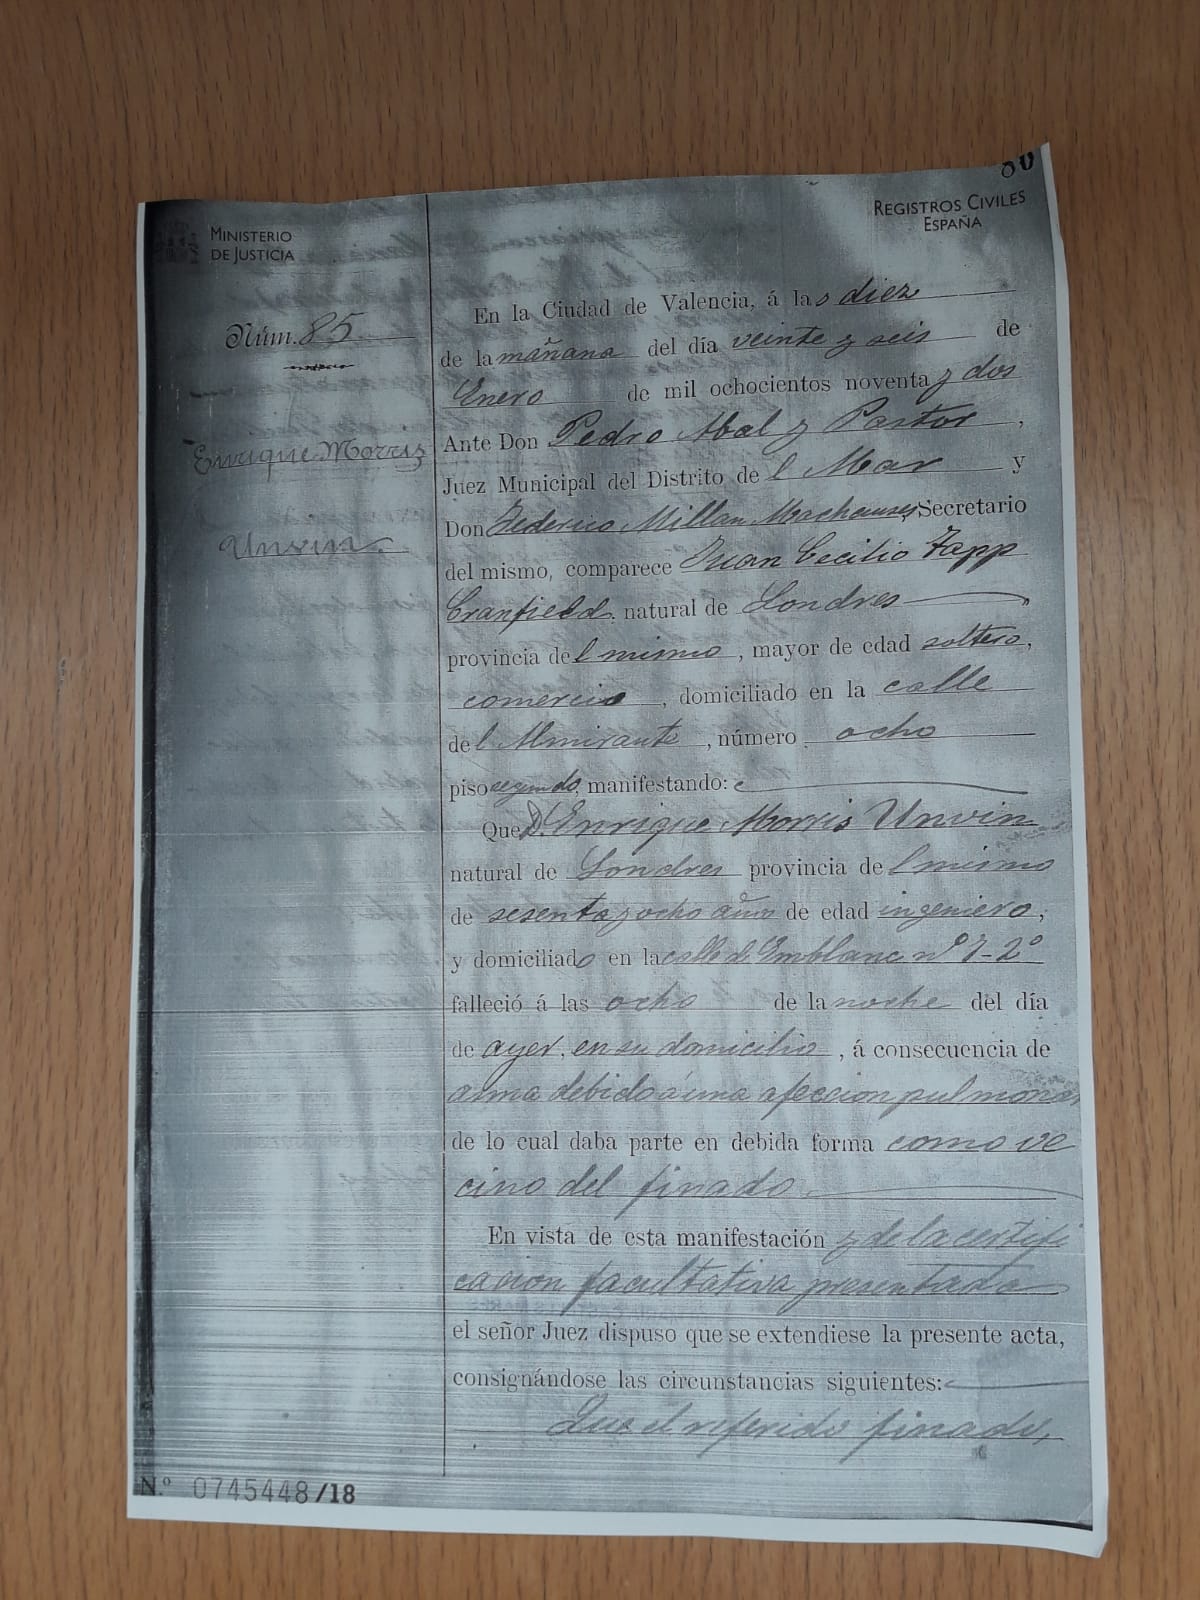 80
MINISTERIO
DE JUSTICIA
REGISTROS CIVILES
ESPAÑA
Núm. 85
Enrique Morris
Unvin.
En la Ciudad de Valencia, á las diez
de la mañana del día veinte y seis de
Enero de mil ochocientos noventa y dos
Ante Don Pedro Abal y Pastor,
Juez Municipal del Distrito del Mar y
Don Federico Millan Secretario
del mismo, comparece Juan Cecilio Tapp
Cranfield. natural de Londres
provincia del mismo, mayor de edad soltero,
comercio, domiciliado en la calle
del Almirante, número ocho
piso segundo, manifestando:
Que D. Enrique Morris Unvin
natural de Londres provincia del mismo
de sesenta y ocho años de edad ingeniero,
y domiciliado en la calle de Emblanc nº 7-2º
falleció á las ocho de la noche del día
de ayer, en su domicilio, á consecuencia de
asma debido á una afeccion pulmonar
de lo cual daba parte en debida forma como ve
cino del finado
En vista de esta manifestación y de la certifi
cacion facultativa presentada
el señor Juez dispuso que se extendiese la presente acta,
consignándose las circunstancias siguientes:
Que el referido finado,
N.º 0745448/18